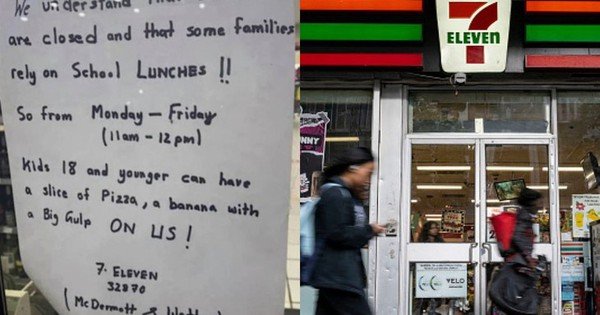 We understand that
are closed and that some families
rely on School LUNCHES !!
So from Monday - Friday
(11am - 12pm)
Kids 18 and younger can have
a slice of Pizza, a banana with
a Big Gulp ON US!
7. ELEVEN
32870
(McDermott &
7
ELEVEN
VELO